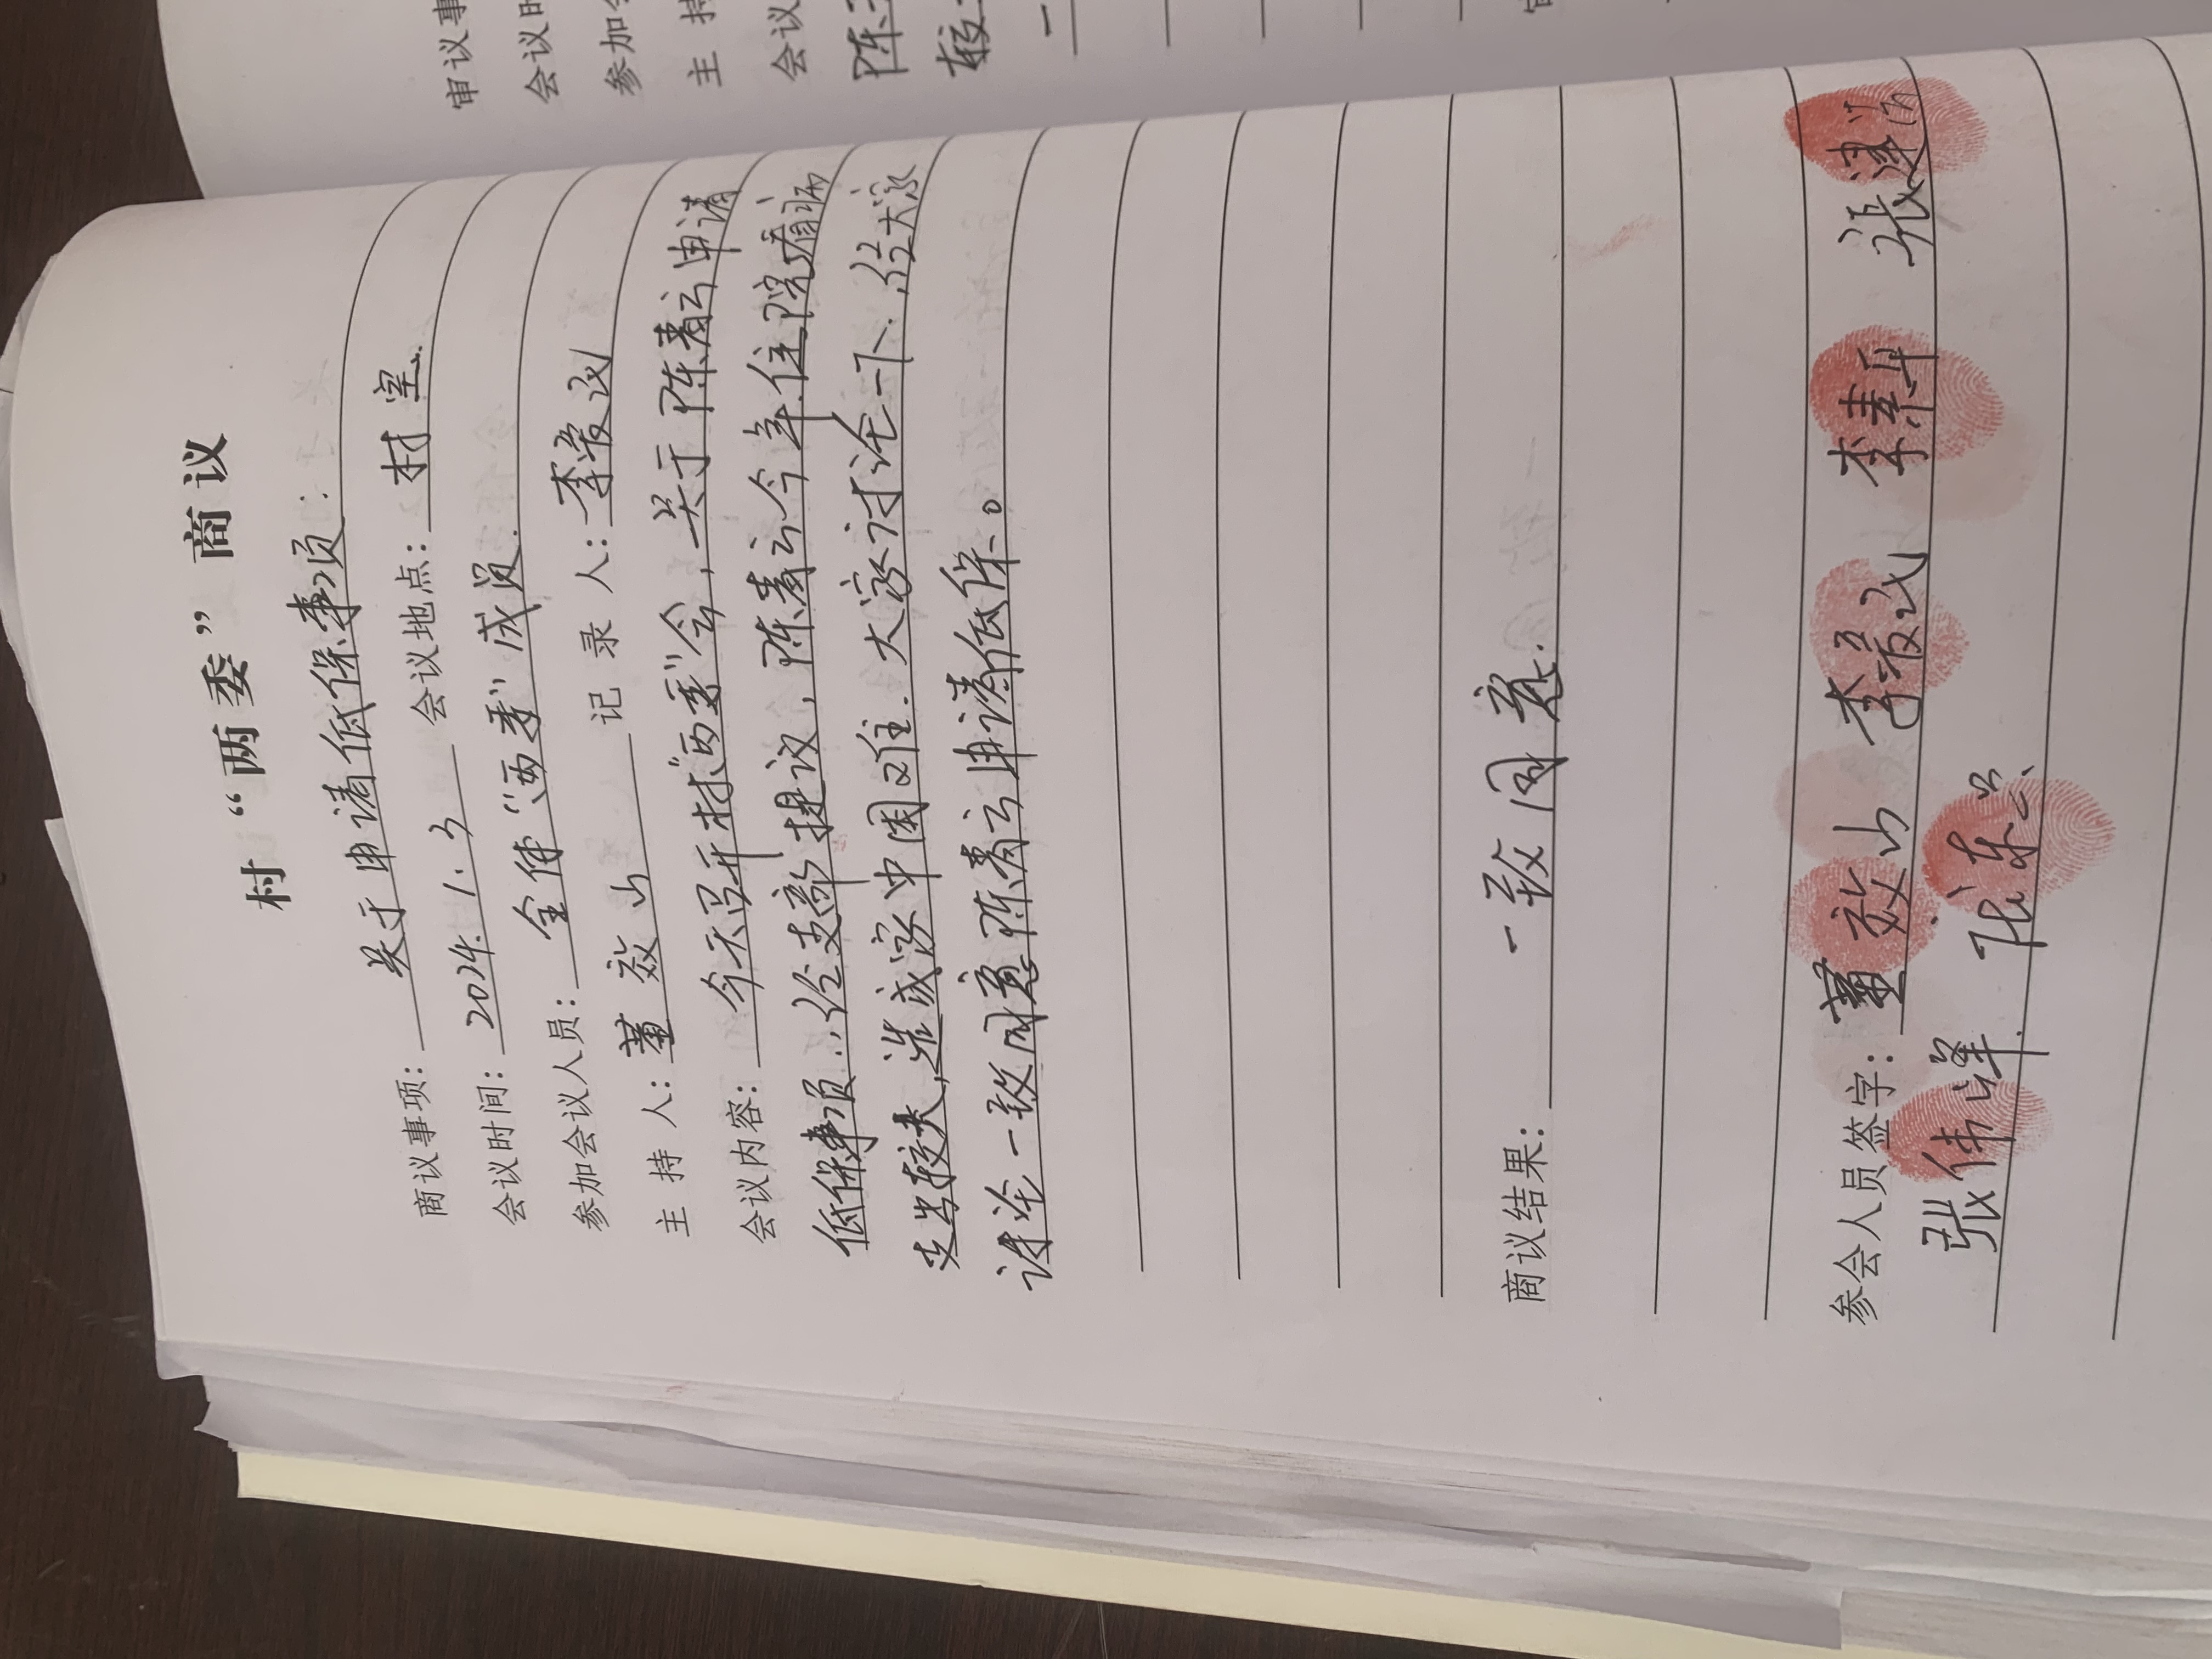 村“两委”商议
商议事项：关于申请低保事项：
会议时间：2024.1.3 会议地点：村室.
参加会议人员：全体“两委”成员.
主持人：董效山 记录人：李爱民
会议内容：今天召开村“两委”会，关于陈青云申请
低保事项..经支部提议，陈青云今年住院看病
支出较大,造成家中困难.大家讨论一下.经大家
讨论一致同意陈青云申请低保。
商议结果：一致同意.
参会人员签字：董效山 李爱民 李素平 張建
張伟峰.
审议事
会议时
参加会
主持
会议
陈
较
一